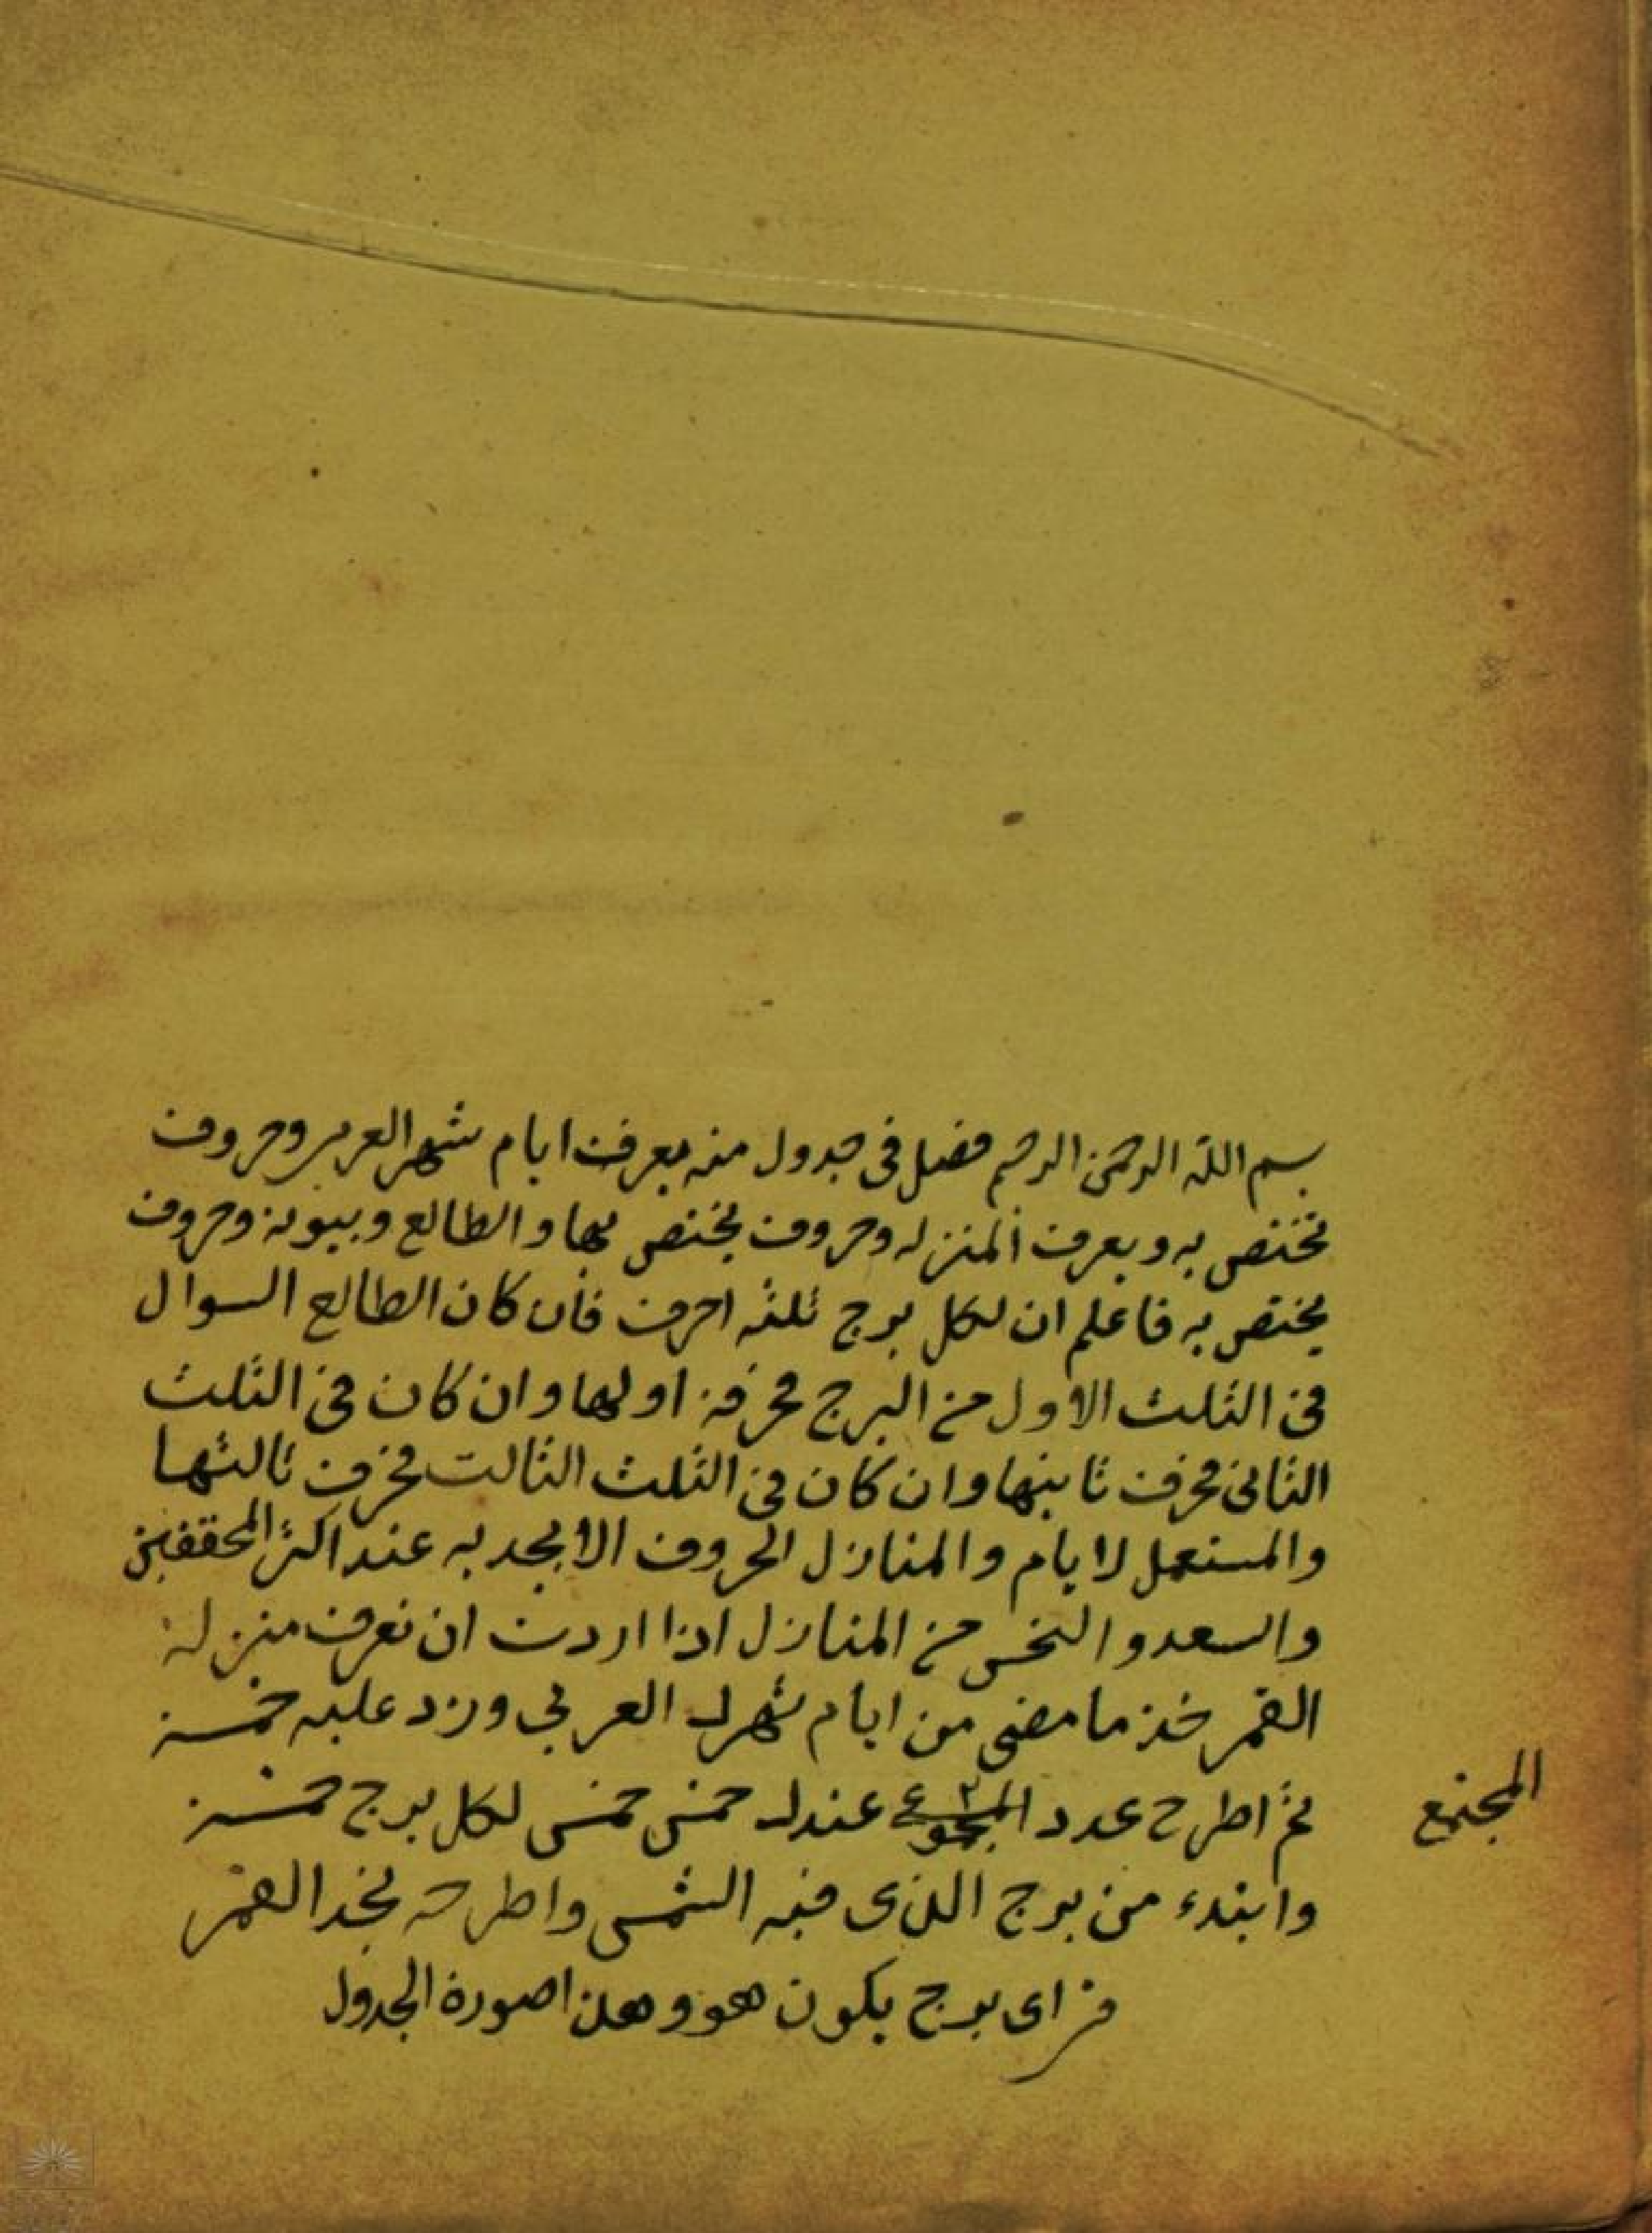 بسم الله الرحمن الرحيم فصل فى جدول منه يعرف ايام شهر العربي وحروف
تختص به ويعرف المنزله وحروف يختص بها والطالع وبيوته وحروف
يختص به فاعلم ان لكل برج ثلثه احرف فان كان الطالع السوال
فى الثلث الاول من البرج فحرفه اولها وان كان فى الثلث
الثانى فحرف ثانيها وان كان فى الثلث الثالث فحرف ثالثها
والمستعمل لايام والمنازل الحروف الابجديه عند اكثر المحققين
والسعد والنحس من المنازل اذا اردت ان تعرف منزله
القمر خذ ما مضى من ايام شهرك العربي وزد عليه خمسة
ثم اطرح عدد المجموع عندك خمس خمس لكل برج خمسة
المجتمع
وابتدء من برج الذى فيه الشمس واطرحه تجد القمر
فى اى برج يكون هو وهذا صورة الجدول